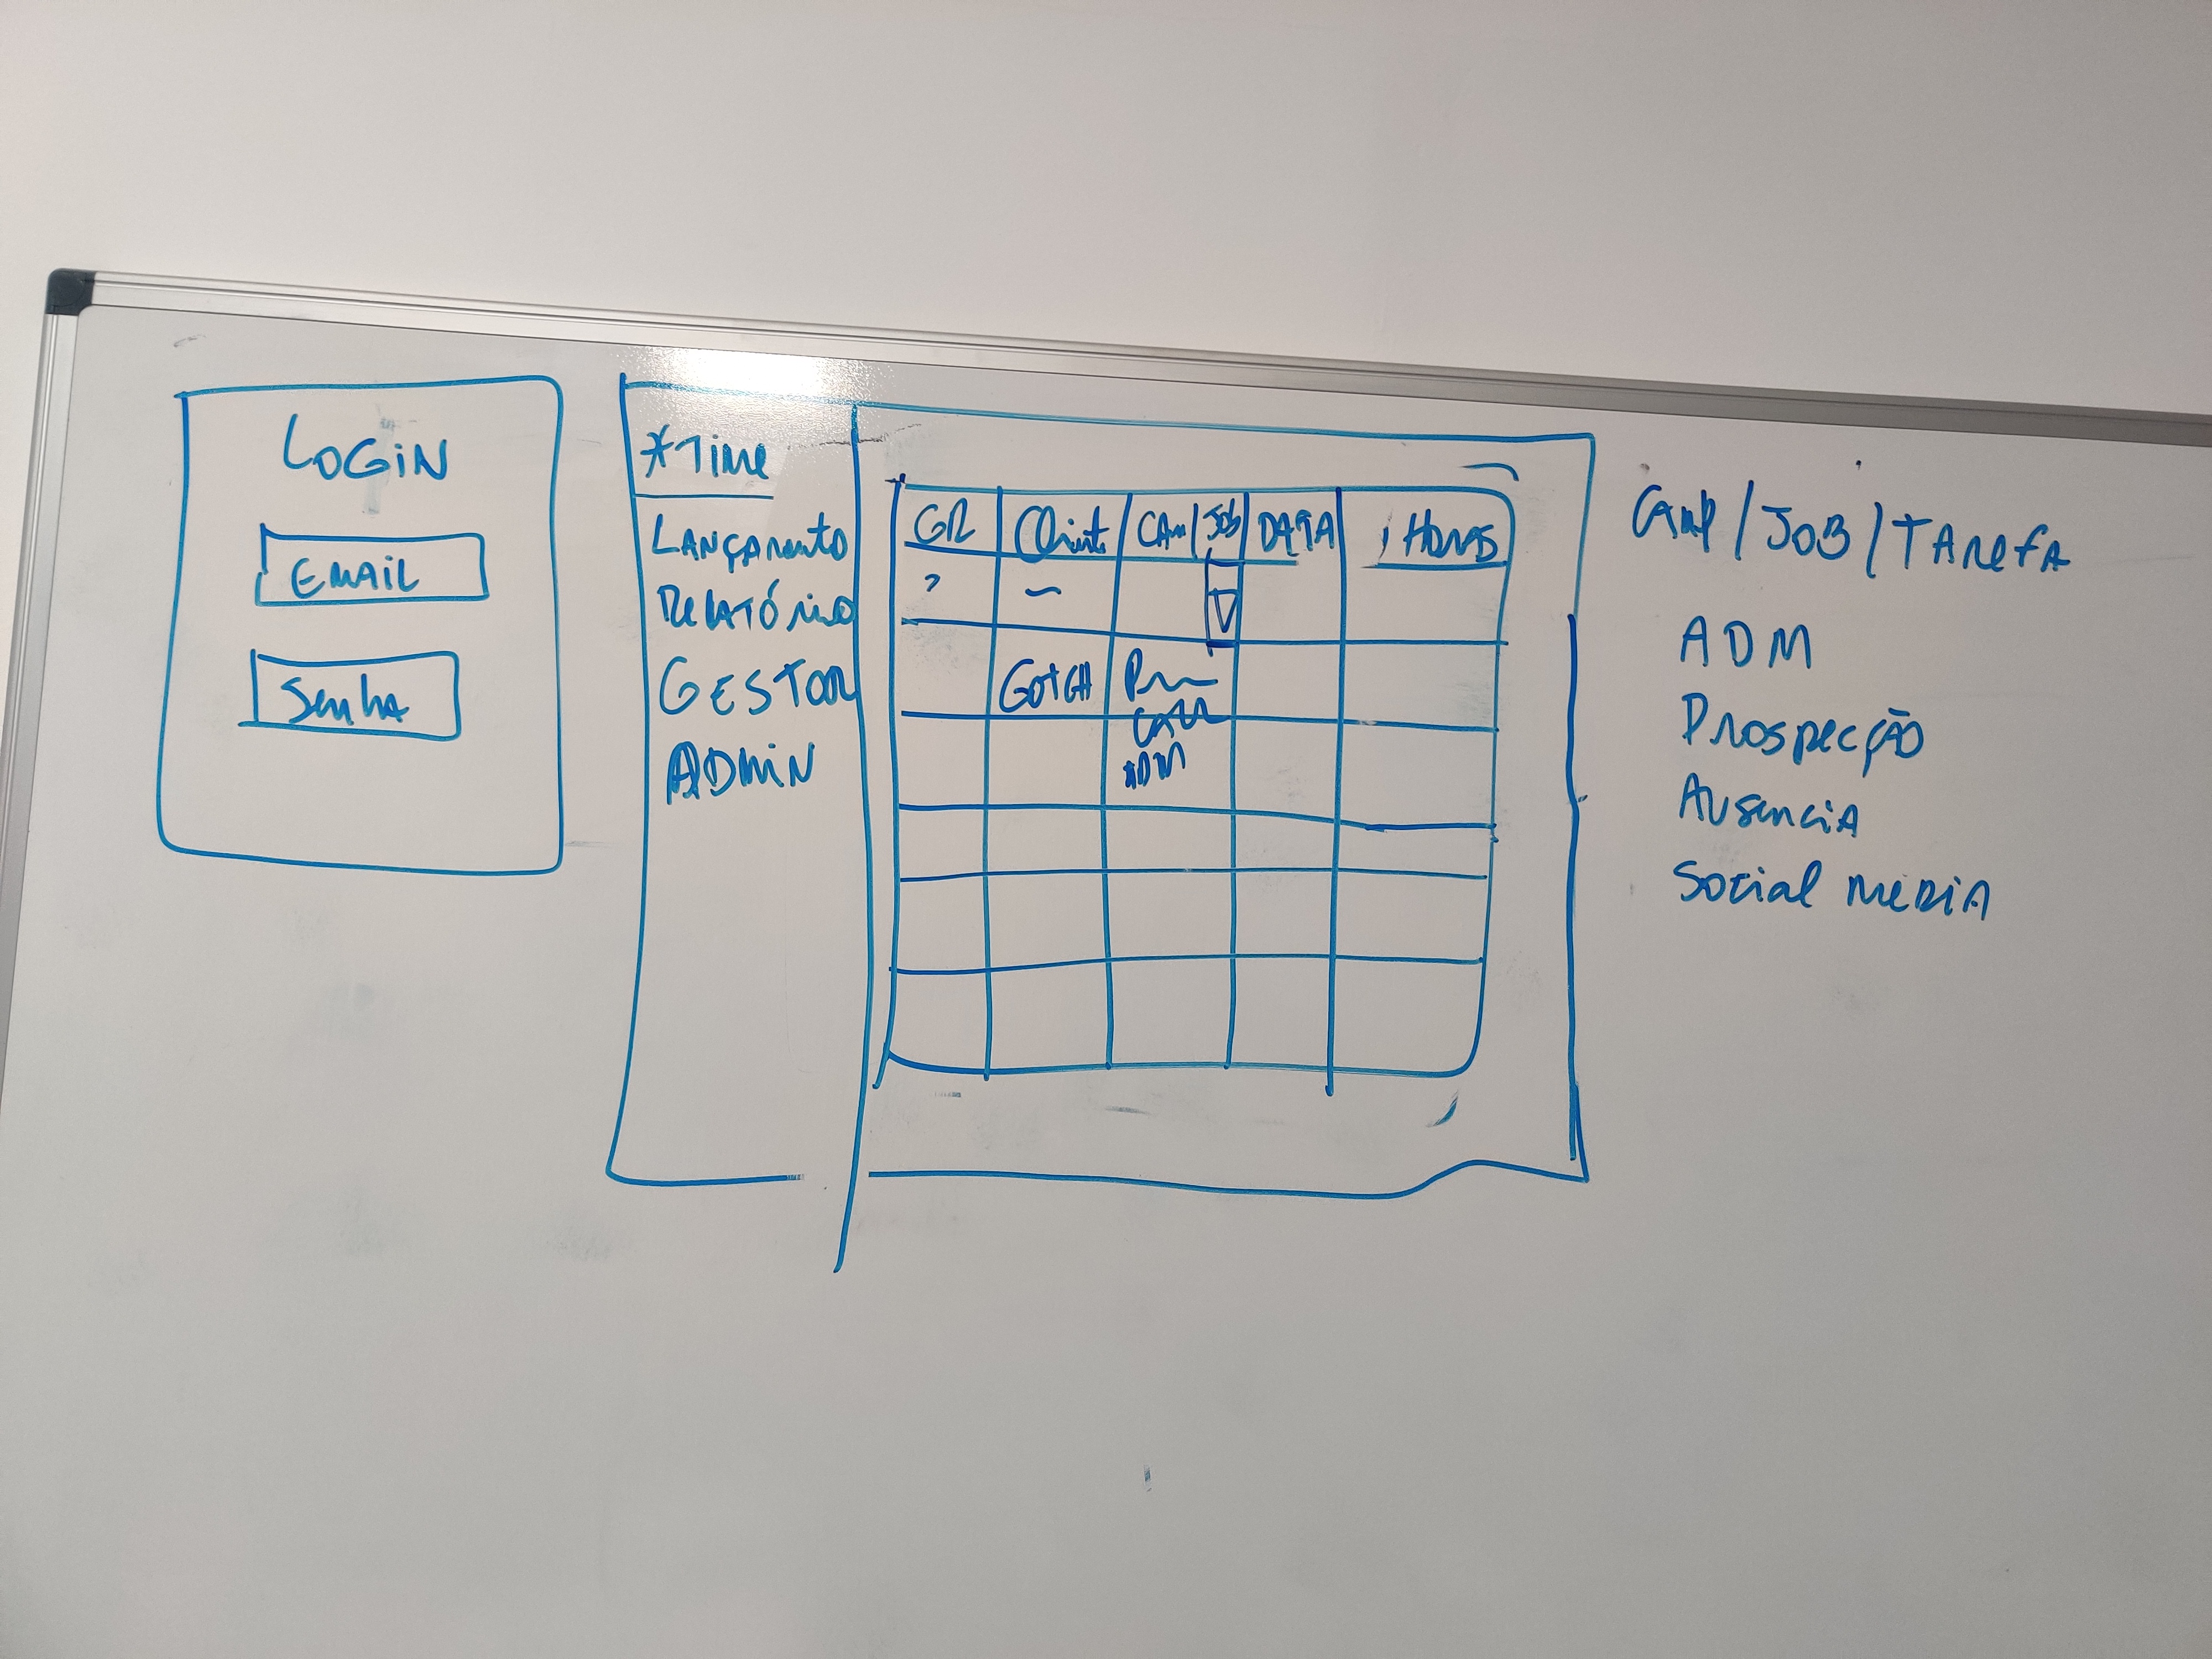 LOGIN
EMAIL
Senha
*Time
LANÇAMENTO
RELATÓRIO
GESTOR
ADMIN
GR Client CAM/JOB DATA HORAS
GOTCH
ADM
CAMP/JOB/TAREFA
ADM
PROSPECÇÃO
AUSENCIA
SOCIAL MEDIA